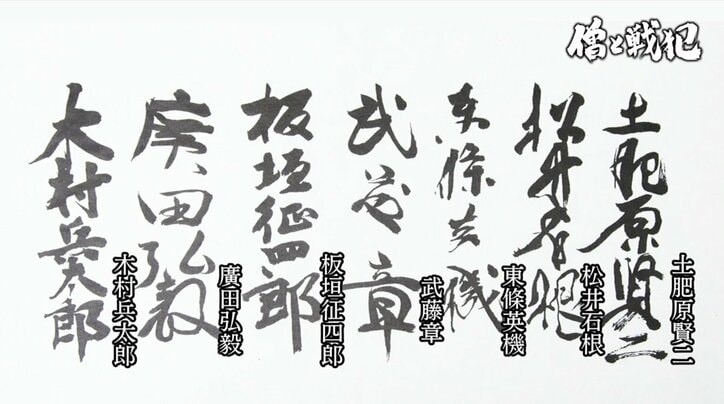 僧と戦犯
土肥原賢二
土肥原賢二
松井石根
松井石根
東條英機
東條英機
武藤章
武藤章
板垣征四郎
板垣征四郎
廣田弘毅
廣田弘毅
木村兵太郎
木村兵太郎